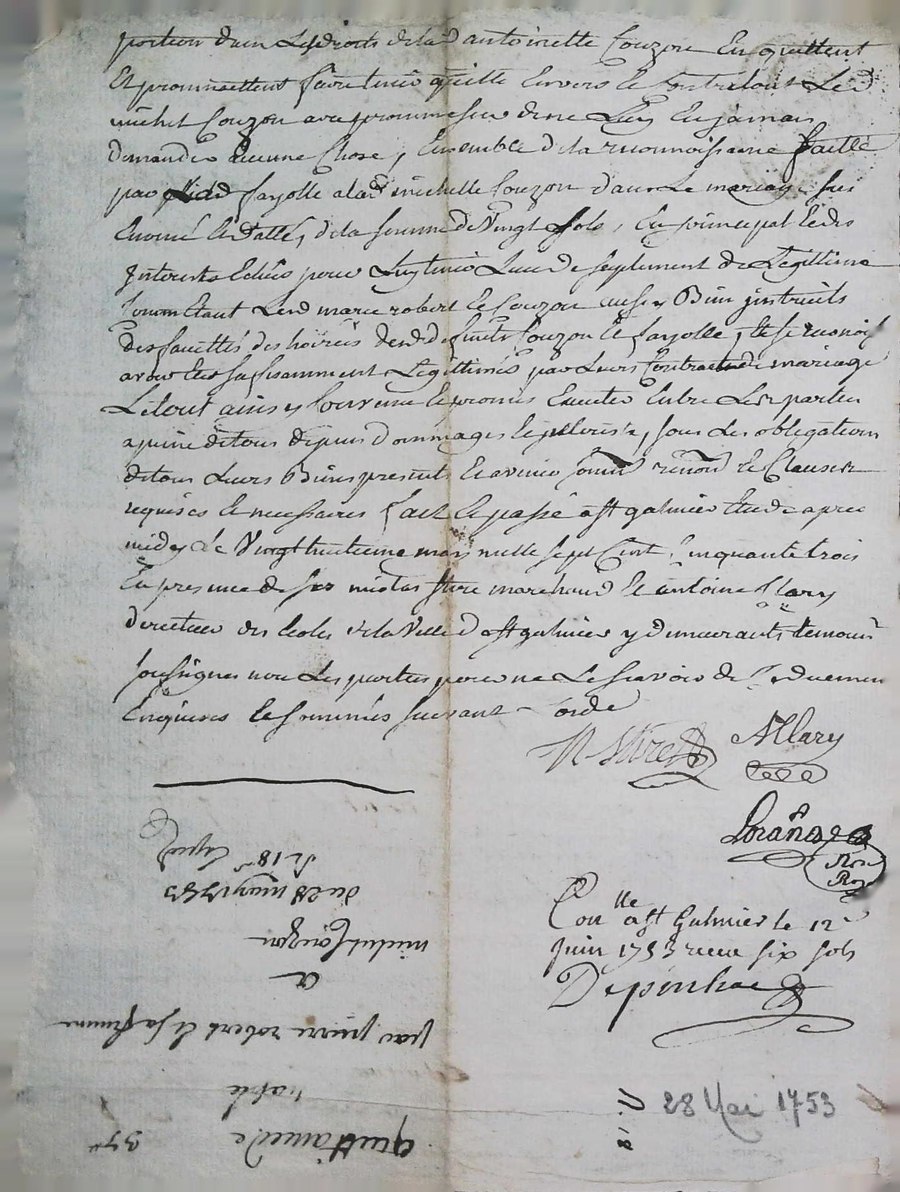 portion dans Les droits de lad antoinette Couzon En quittent
Et promettent faire tenir quitte Envers et Contre tous Led
michel Couzon avec promesse de ne Luy En jamais
demander aucune Chose, Ensemble de la reconnoissance faitte
par led fayolle a lad michelle Couzon dans Le mariage
de la somme de Vingt sols, En principal et des
Interests pour Luy tenir Lieu de suplement de Legittime
Led marie robert et Couzon Bien instruits
des facultés des hoiries desd deffunts Couzon et fayolle, et se
avoir ete suffisamment Legittimés par Leurs Contracts de mariage
Le tout ainsy Convenu et promis Executer Entre Lesd parties
a peine de tous depens dommages et interests, sous Les obligations
de tous Leurs Biens presents et avenir soum renon et Clauses
requises et necessaires fait et passé a St galmier Etude apres
midy Le Vingthuitieme may mille sept Cent Cinquante trois
En presence de srs nicolas Stire marchand et antoine Allary
directeur des Ecoles de la Ville d St galmier y demeurants temoins
soussignes non Les parties pour ne Le sçavoir de Ce duement
Enquises et sommées suivant Lorde
N Stire Allary
Conlle a St Galmier le 12e
Juin 1753 receu six sols
quittance de
37#
par pierre robert et sa femme
a
michel Couzon
du 28 may 1753
28 Mai 1753